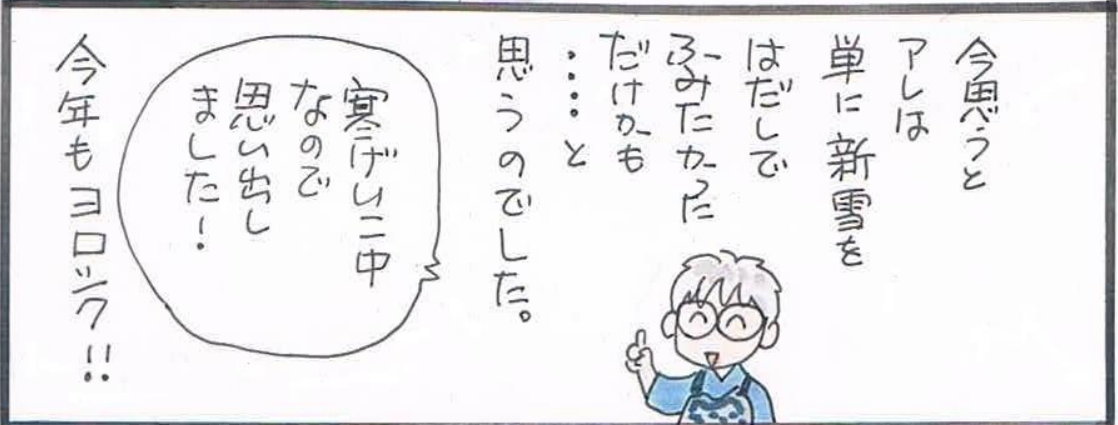 今思うと
アレは
単に新雪を
はだしで
ふみたかった
だけかも
‥‥と
思うのでした。
寒げいこ中
なので
思い出し
ました!
今年もヨロシク!!